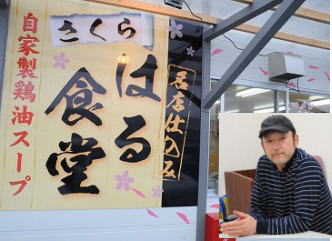 さくら
はる食堂
名店仕込み
自家製鶏油スープ